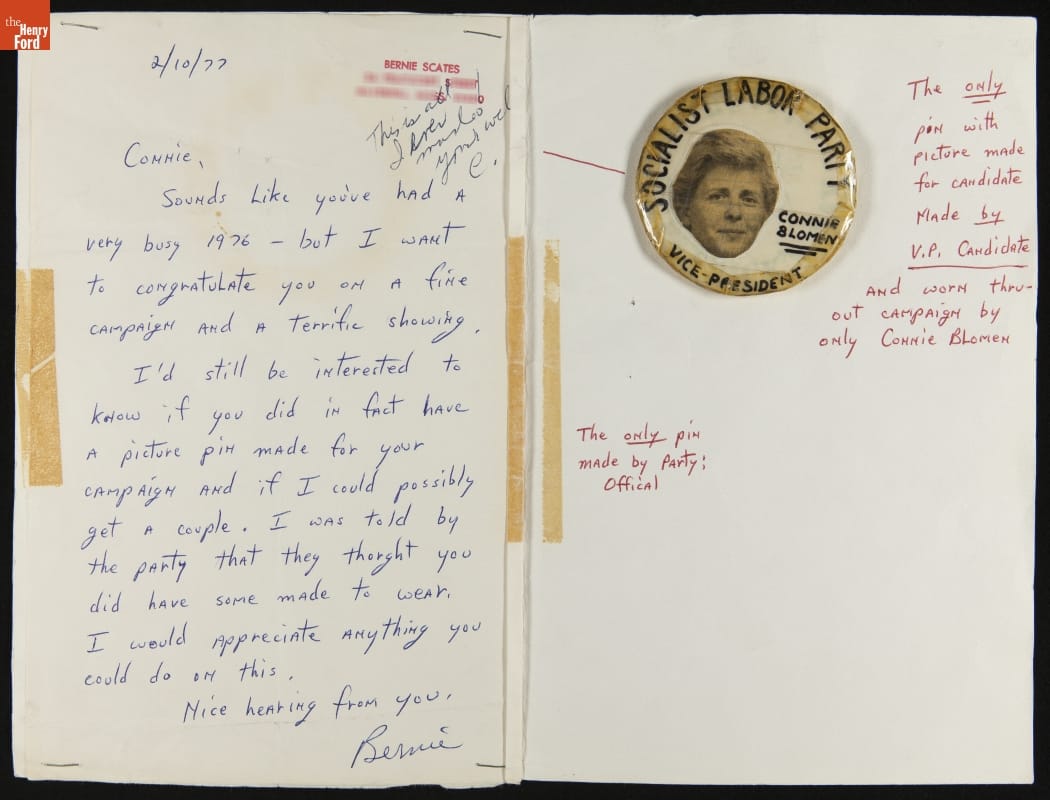 the
Henry
Ford
2/10/77
BERNIE SCATES
This is all
I ever
made
your
C.
Connie,
Sounds like you've had a
very busy 1976 – but I want
to congratulate you on a fine
campaign and a terrific showing.
I'd still be interested to
know if you did in fact have
a picture pin made for your
campaign and if I could possibly
get a couple. I was told by
the party that they thorght you
did have some made to wear.
I would appreciate anything you
could do on this.
Nice hearing from you.
Bernie
SOCIALIST LABOR PARTY
CONNIE
BLOMEN
VICE-PRESIDENT
The only
pin with
picture made
for candidate
Made by
V.P. Candidate
and worn thru-
out campaign by
only Connie Blomen
The only pin
made by Party;
Offical